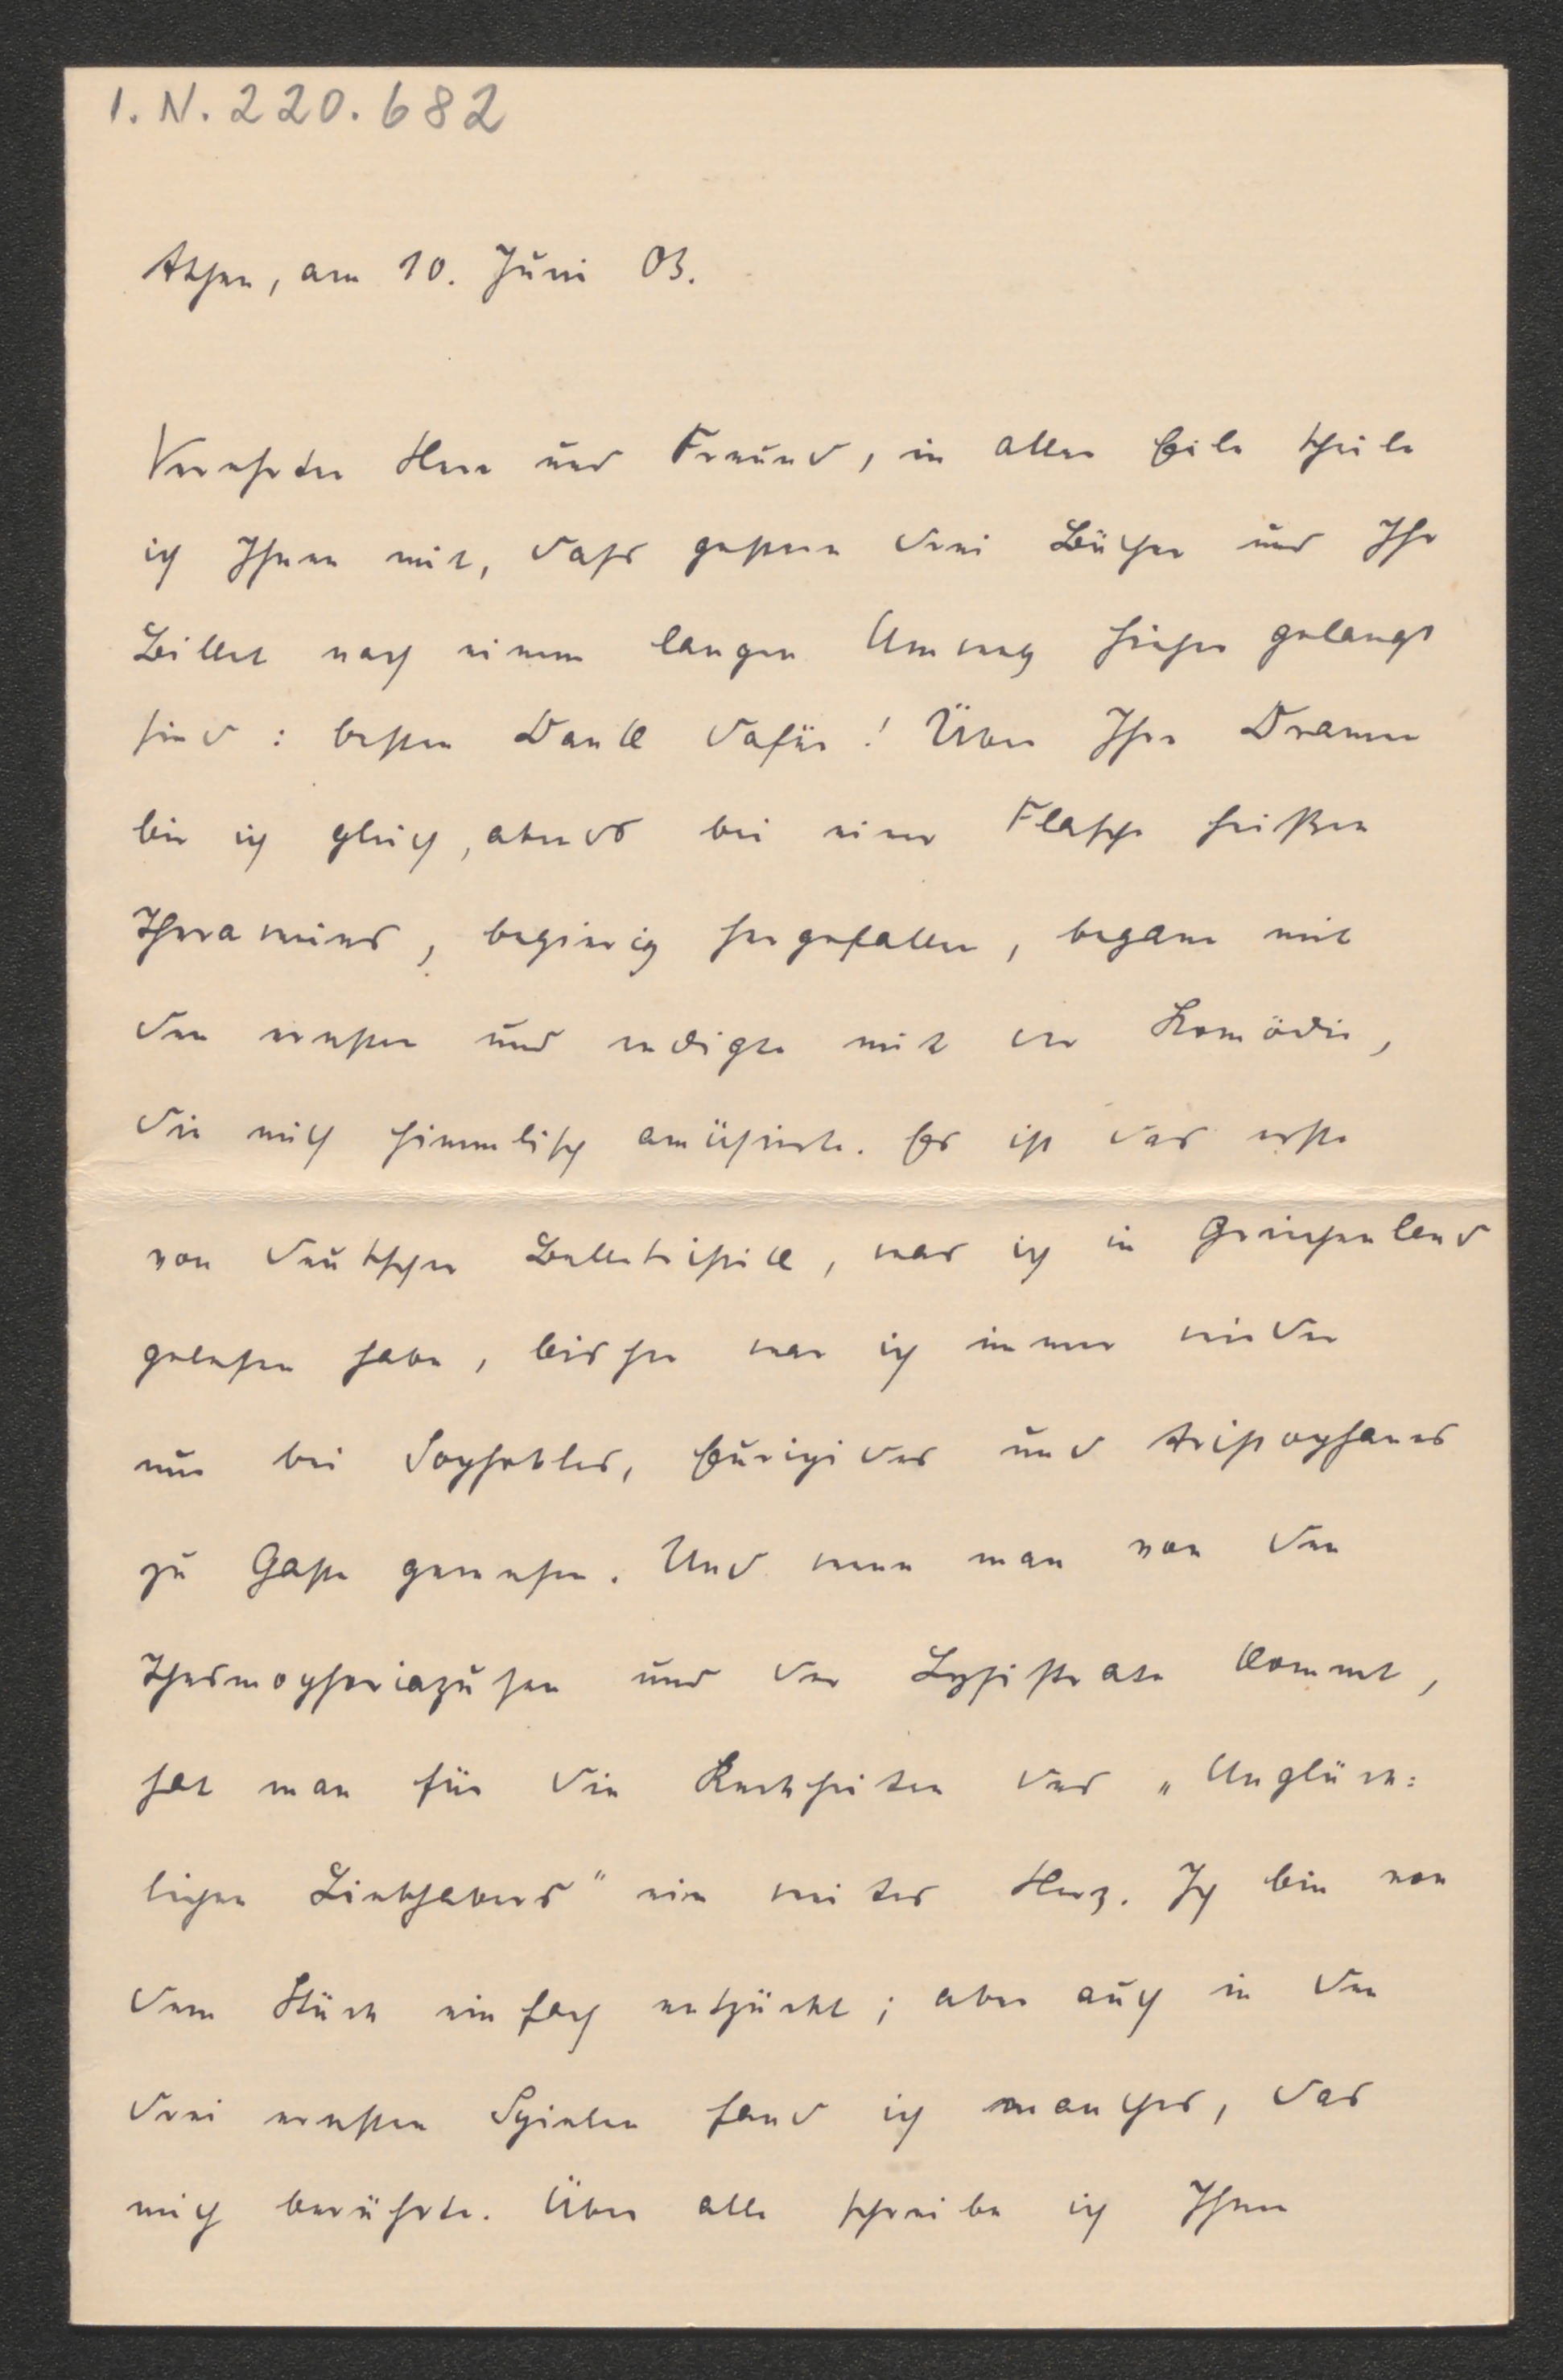 I. N. 220.682
Athen, am 10. Juni 03.
Verehrter Herr und Freund, in aller Eile theile
ich Ihnen mit, dass gestern drei Bücher und Ihr
Billett nach einem langen Umweg hieher gelangt
sind: besten Dank dafür! Über Ihre Dramen
bin ich gleich, abends bei einer Flasche heißen
Therawines, begierig hergefallen, begann mit
den ernsten und endigte mit der Komödie,
die mich himmlisch amüsirte. Es ist das erste
von deutscher Belletristik, was ich in Griechenland
gelesen habe, bisher war ich immer wieder
nur bei Sophokles, Euripides und Aristophanes
zu Gaste gewesen. Und wenn man von den
Thesmophoriazusen und der Lysistrate kommt,
hat man für die Keckheiten des „Unglück:
lichen Liebhabers" ein weites Herz. Ich bin von
dem Stück einfach entzückt; aber auch in den
drei ernsten Spielen fand ich manches, das
mich berührte. Über alle schreibe ich Ihnen